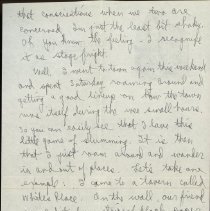 that conversations when we two are
concerned. I'm just the least bit shaky.
Oh you know the feeling - I recognize
it as stage fright.
Well, I went to town again this weekend
and spent Saturday roaming around and
getting a good lining on how the town
runs itself during the wee small hours.
So you can easily see, that I love this
little game of slumming. It is then
that I just roam around and wander
in and out of places. Let's take one
example. I came to a tavern called
White's Place. On the wall, our friend